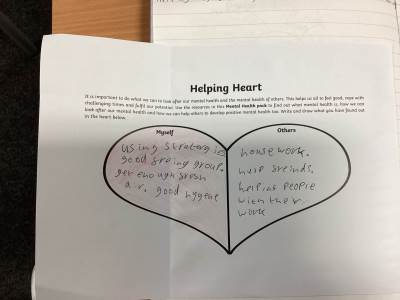 Helping Heart
It is important to do what we can to look after our mental health and the mental health of others. This helps us all to feel good, cope with
challenging times and fulfil our potential. Use the resources in this Mental Health pack to find out what mental health is, how we can
look after our mental health and how we can help others to develop positive mental health too. Write and draw what you have found out
in the heart below.
Myself
using stratorgies
good freing group.
get enough fresh
air. good hygene
Others
house work.
help freinds.
helping people
with ther
work